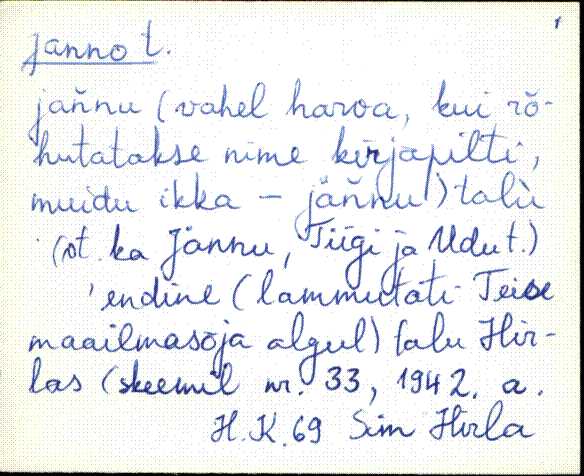 Janno t.
jaňnu (vahel harva, kui rõ-
hutatakse nime kirjapilti,
muidu ikka – jäňnu) talu
(vt. ka Jännu, Tiigi ja Udu t.)
endine (lammutati Teise
maailmasõja algul) talu Hir-
las (skeemil nr. 33, 1942. a.
H.K.69 Sim Hirla